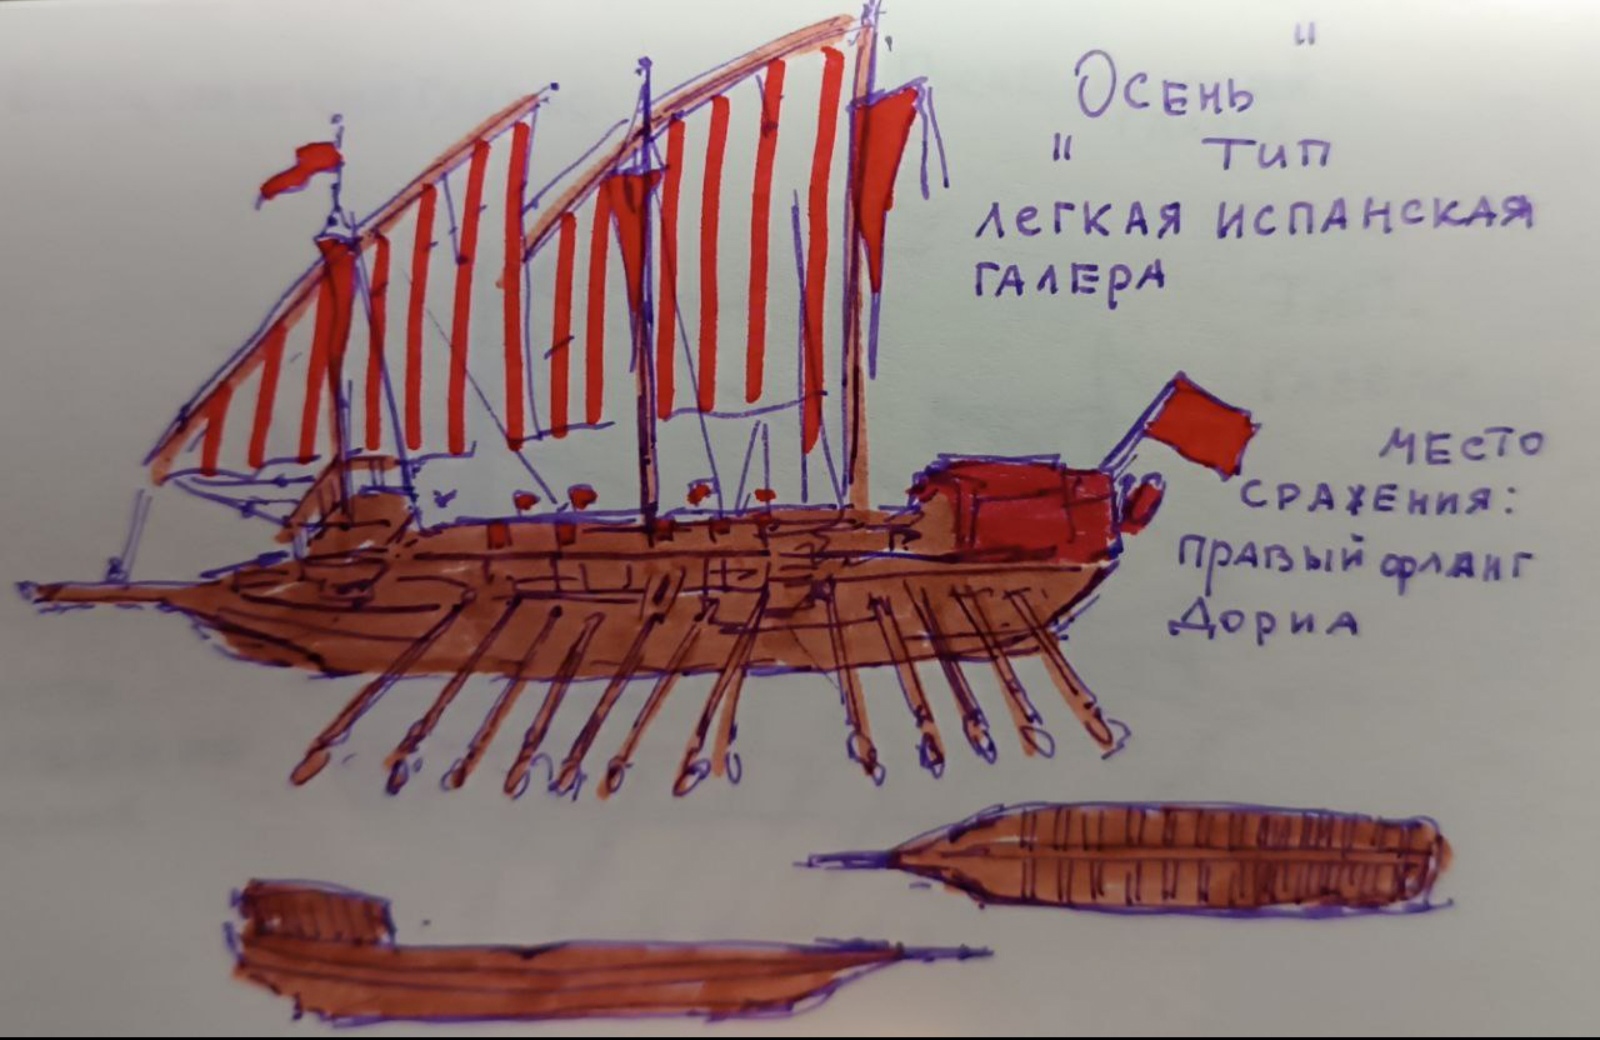 "
Осень
" тип
легкая испанская
галера
место
сражения:
правый фланг
Дориа